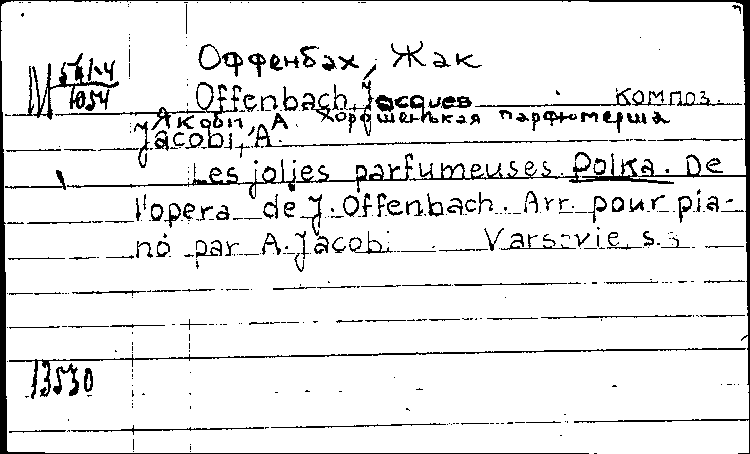 Оффенбах, Жак
M 511-4
1054
Offenbach, Jacques композ.
Якоби, А. Хорошенькая парфюмерша
Jacobi, A.
Les jolies parfumeuses Polka. De
l'opera de J. Offenbach. Arr. pour pia-
no par A. Jacobi Varsovie, s.
13530